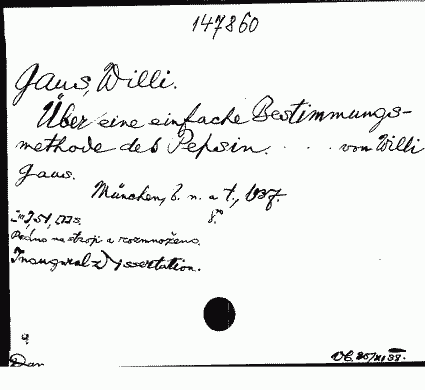 147860
Gaus, Willi.
Über eine einfache Bestimmungs-
methode des Pepsin. . . . . von Willi
Gaus.
München, b. n. a t., 1937.
8.°
Psáno na stroji a rozmnoženo.
Inaugural Dissertation.
Dar